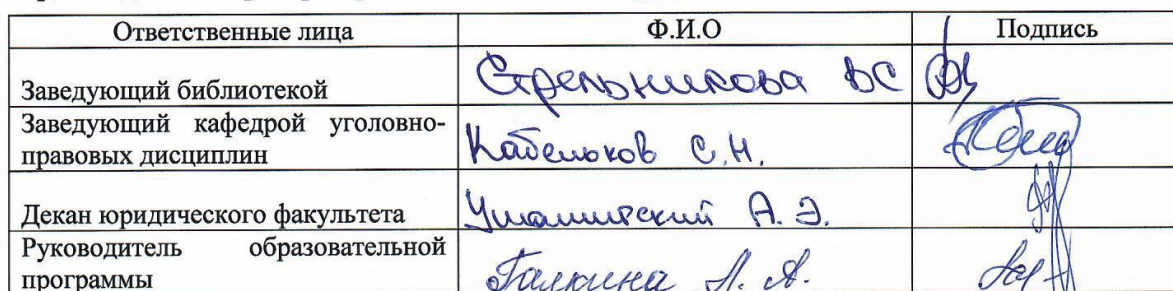 Ответственные лица Ф.И.О Подпись
Заведующий библиотекой Стрельникова ВС
Заведующий кафедрой уголовно-
правовых дисциплин Кабельков С.Н.
Декан юридического факультета А.Э.
Руководитель образовательной
программы Галкина А.